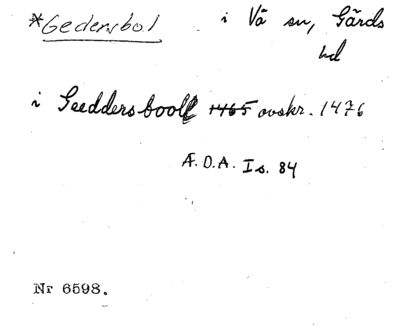 *Gedersbol i Vä sn, Gärds
hd
i Geeddersboolle 1465 avskr. 1476
Æ.D.A. I s. 84
Nr 6598.